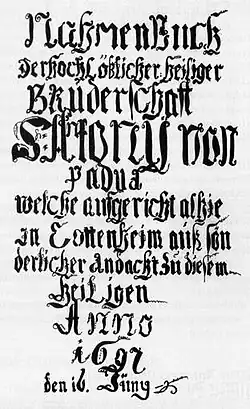 Nahmen Buch
der hochl ößlicher heiliger
Bruderschaft
S Antony von
Padua
welche aufgericht alhie
in Tottenheim auß son
derlicher andacht zu diesem
heiligen
Anno
1697
den 16. Juny